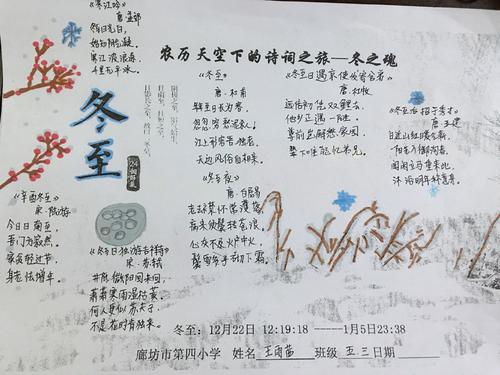 《寒江吟》
唐·孟郊
冬至日光白，
农历天空下的诗词之旅—冬之魂
《冬至》
唐·杜甫
年年至日长为客，
忽忽穷愁泥杀人！
江上形容吾独老，
天边风俗自相亲。
《冬至日遇京使发寄舍弟》
唐·杜牧
远信初凭双鲤去，
他乡正遇一阳生。
尊前岂解愁家国，
辇下唯能忆弟兄。
《冬至后招于秀才》
唐·王建
日近山红暖气新，
一阳先入御沟春。
闻闲立马重来此，
沐浴明年称意身。
冬至
《冬至夜》
唐·白居易
老去襟怀常濩落，
病来须鬓转苍浪。
心灰不及炉中火，
鬓雪多于砌下霜。
《辛酉冬至》
宋·陆游
今日日南至，
吾门方寂然。
家贫轻过节，
身老怯增年。
《冬至日独游吉祥寺》
宋·苏轼
井底微阳回未回，
萧萧寒雨湿枯荄。
何人更似苏夫子，
不是花时肯独来。
冬至：12月22日 12:19:18 -----1月5日23:38
廊坊市第四小学 姓名 王雨茜 班级 五.三 日期